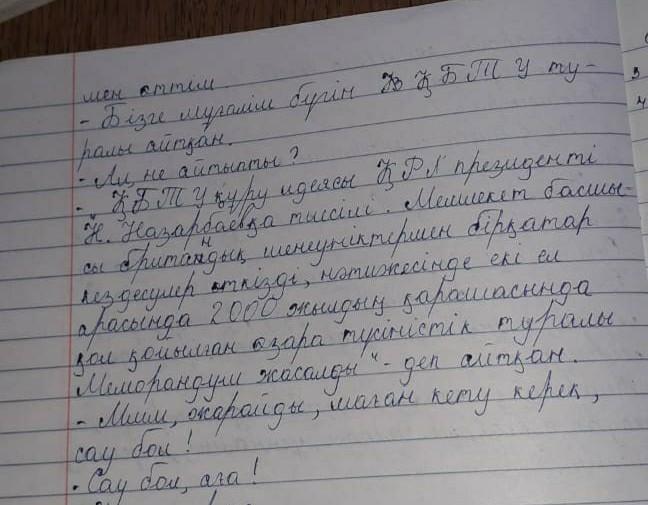 мен өттім
- Бізге мұғалім бүгін ҚБТУ ту-
ралы айтқан.
- Ал, не айтыпты?
- ҚБТУ құру идеясы ҚР президенті
Н. Назарбаевқа тиесілі. Мемлекет басшы-
сы британдық шенеуніктермен бірқатар
кездесулер өткізді, нәтижесінде екі ел
арасында 2000 жылдың қарашасында
қол қойылған өзара түсіністік туралы
Меморандум жасалды" - деп айтқан.
- Ммм, жарайды, маған кету керек,
сау бол!
- Сау бол, аға!